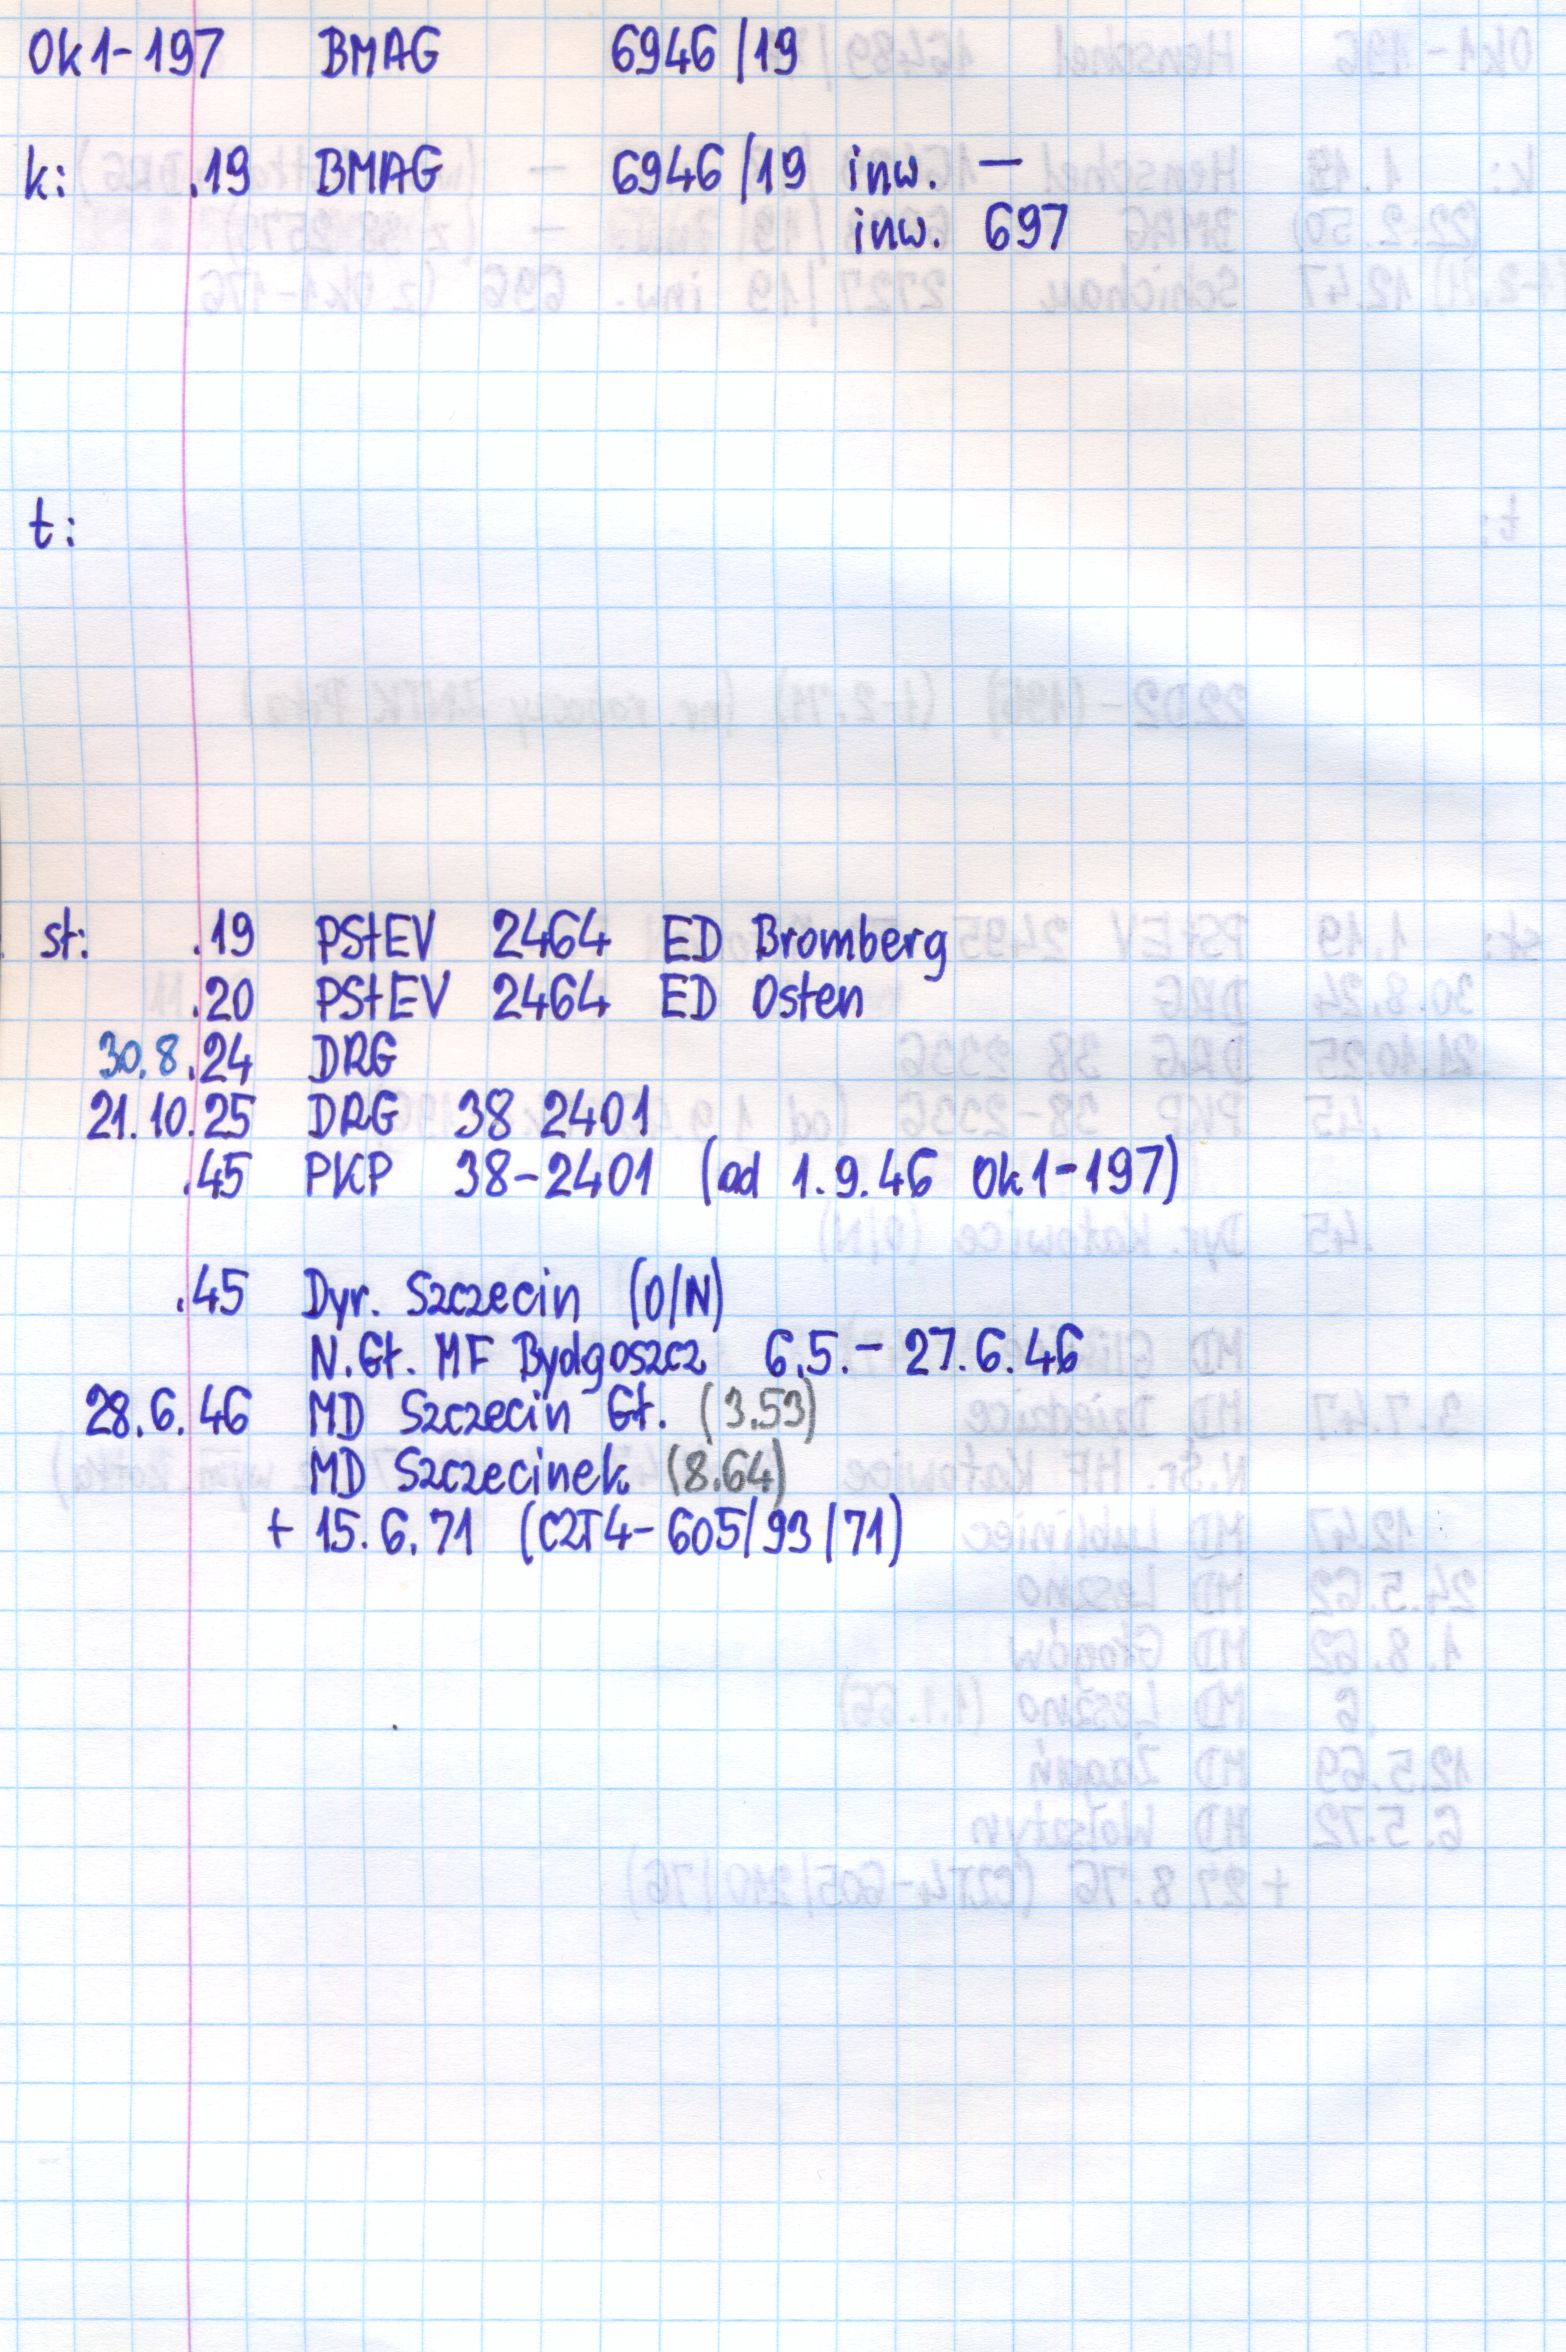 Ok1-197 BMAG 6946/19
k: .19 BMAG 6946/19 inw. —
inw. 697
t:
st: .19 PStEV 2464 ED Bromberg
.20 PStEV 2464 ED Osten
30.8.24 DRG
21.10.25 DRG 38 2401
.45 PKP 38-2401 (od 1.9.46 Ok1-197)
.45 Dyr. Szczecin (O/N)
N.Gł. MF Bydgoszcz 6.5.- 27.6.46
28.6.46 MD Szczecin Gł. (3.53)
MD Szczecinek (8.64)
+ 15.6.71 (CZT4-605/93/71)